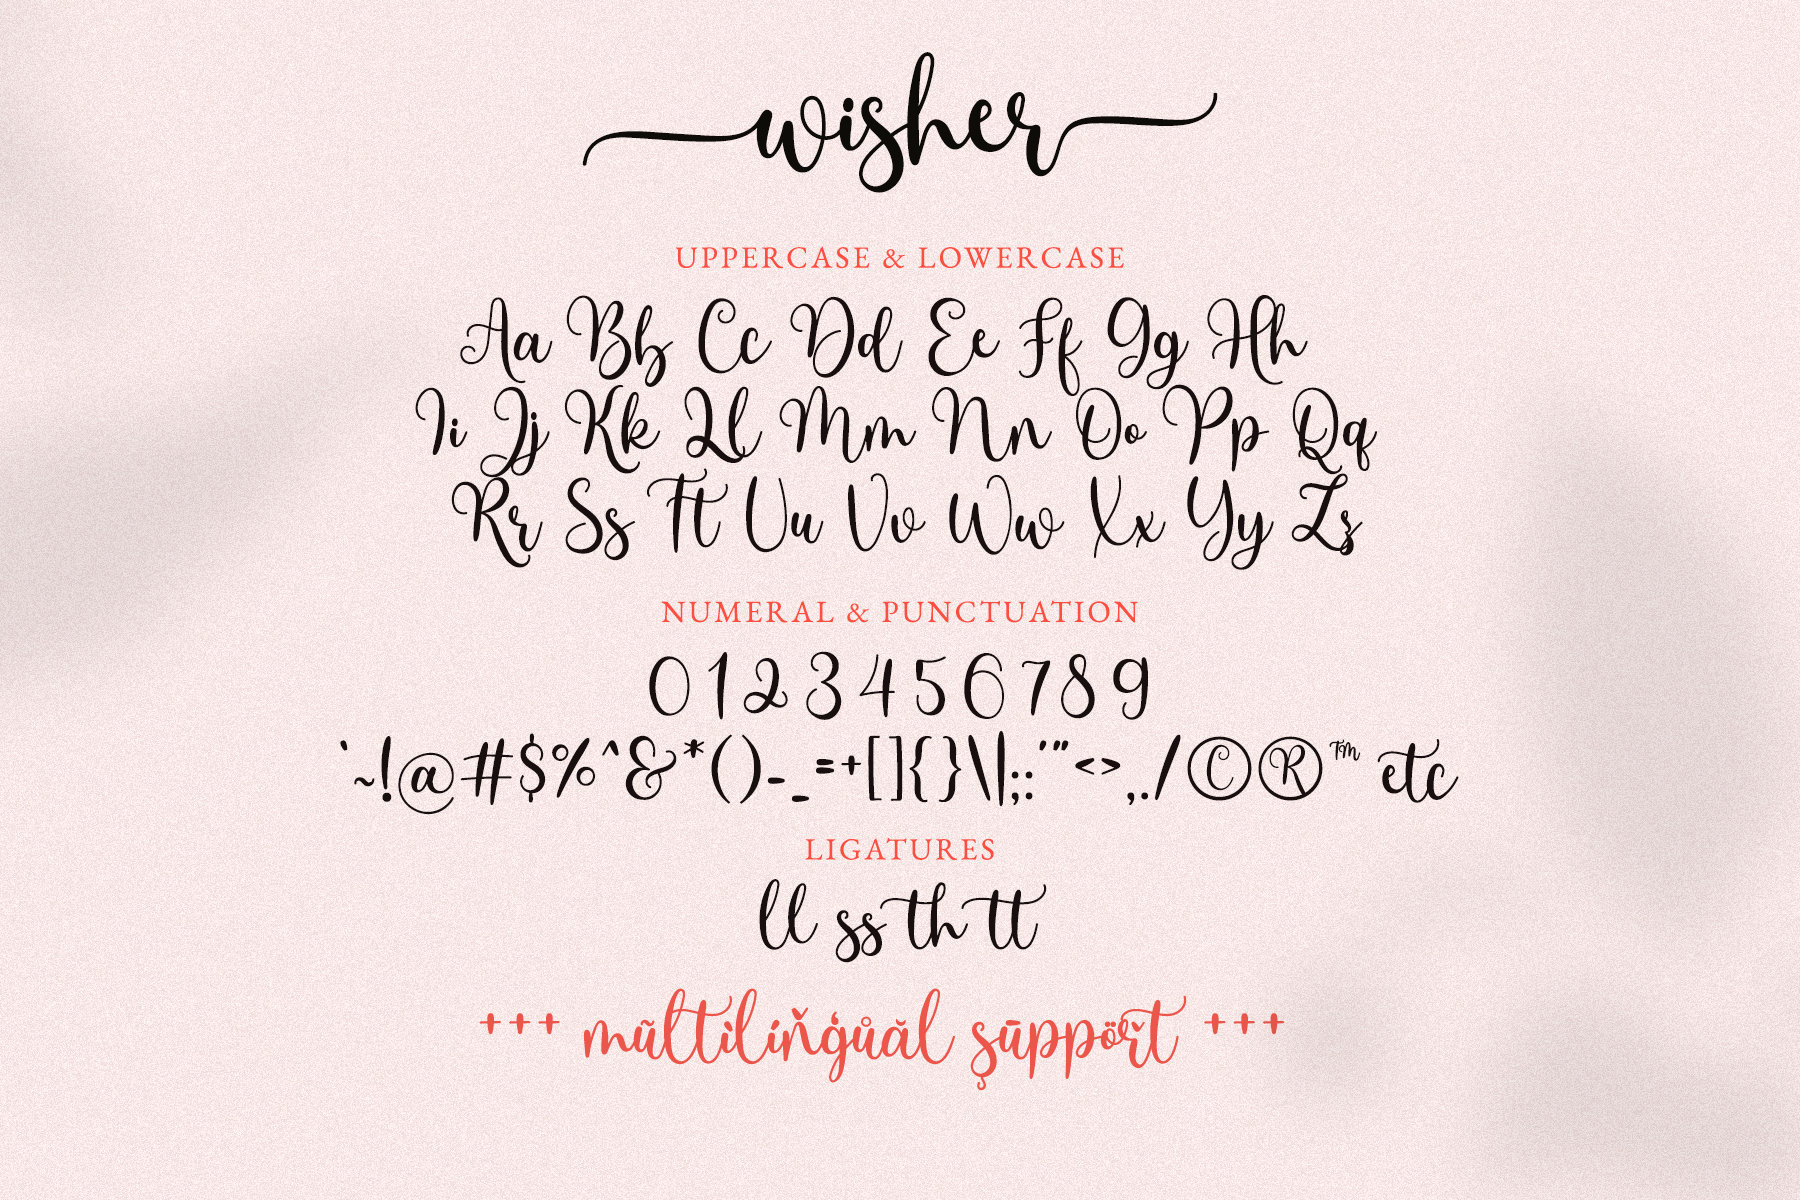 wisher
UPPERCASE & LOWERCASE
Aa Bb Cc Dd Ee Ff Gg Hh
Ii Jj Kk Ll Mm Nn Oo Pp Qq
Rr Ss Tt Uu Vv Ww Xx Yy Zz
NUMERAL & PUNCTUATION
0 1 2 3 4 5 6 7 8 9
`~!@#$%^&*()-_=+[]{}\|;:'"<>,./©®™ etc
LIGATURES
ll ss th tt
+++ mũltìlíňģůăl şūppöřt +++